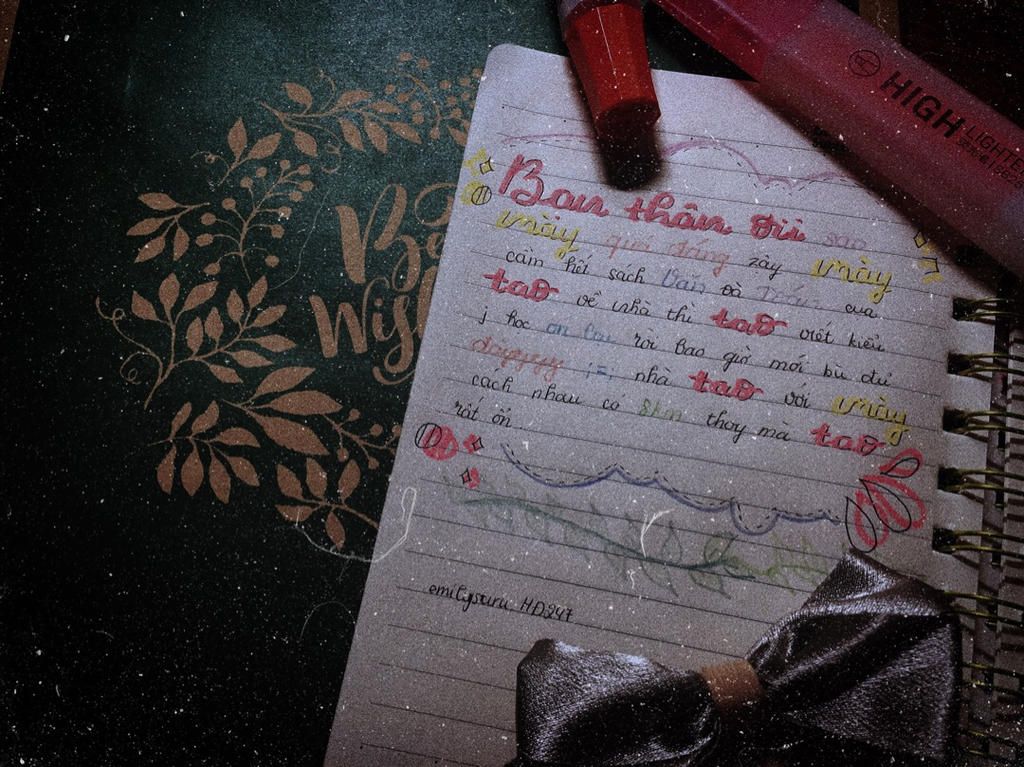 Best
Wish
HIGH
LIGHTER
Bạn thân ơi sao
mày quá đáng zậy mày
cầm hết sách Văn và Toán của
tao về nhà thì tao viết kiểu
j học on lai rồi bao giờ mới bù đủ
đayyyy :=; nhà tao với mày
cách nhau có 8km thoy mà tao
rất ổn
emilysuru HD247